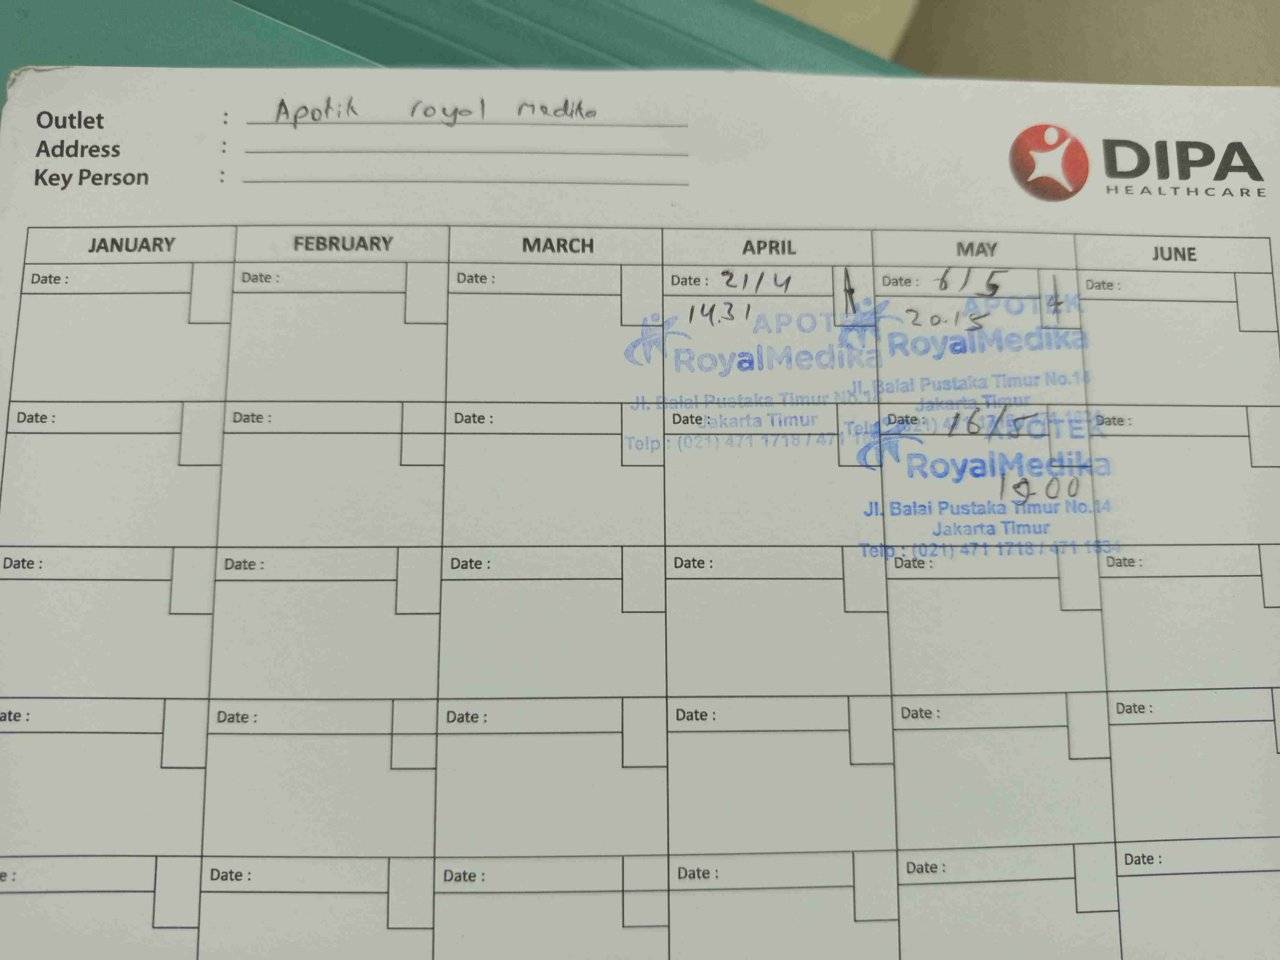 Outlet : Apotik royal medika
Address :
Key Person :
DIPA
HEALTHCARE
JANUARY FEBRUARY MARCH APRIL MAY JUNE
Date : Date : Date : Date : 21/4 Date : 6/5 Date :
14.31 20.15
APOTEK
RoyalMedika
Jl. Balai Pustaka Timur No.14
Jakarta Timur
Telp : (021) 471 1718 / 471
APOTEK
RoyalMedika
Jl. Balai Pustaka Timur No.14
Jakarta Timur
Date : Date : Date : Date : Date : 16/5 Date :
APOTEK
RoyalMedika
Jl. Balai Pustaka Timur No.14
Jakarta Timur
Telp : (021) 471 1718 / 471
Date : Date : Date : Date : Date : Date :
ate : Date : Date : Date : Date : Date :
e : Date : Date : Date : Date : Date :